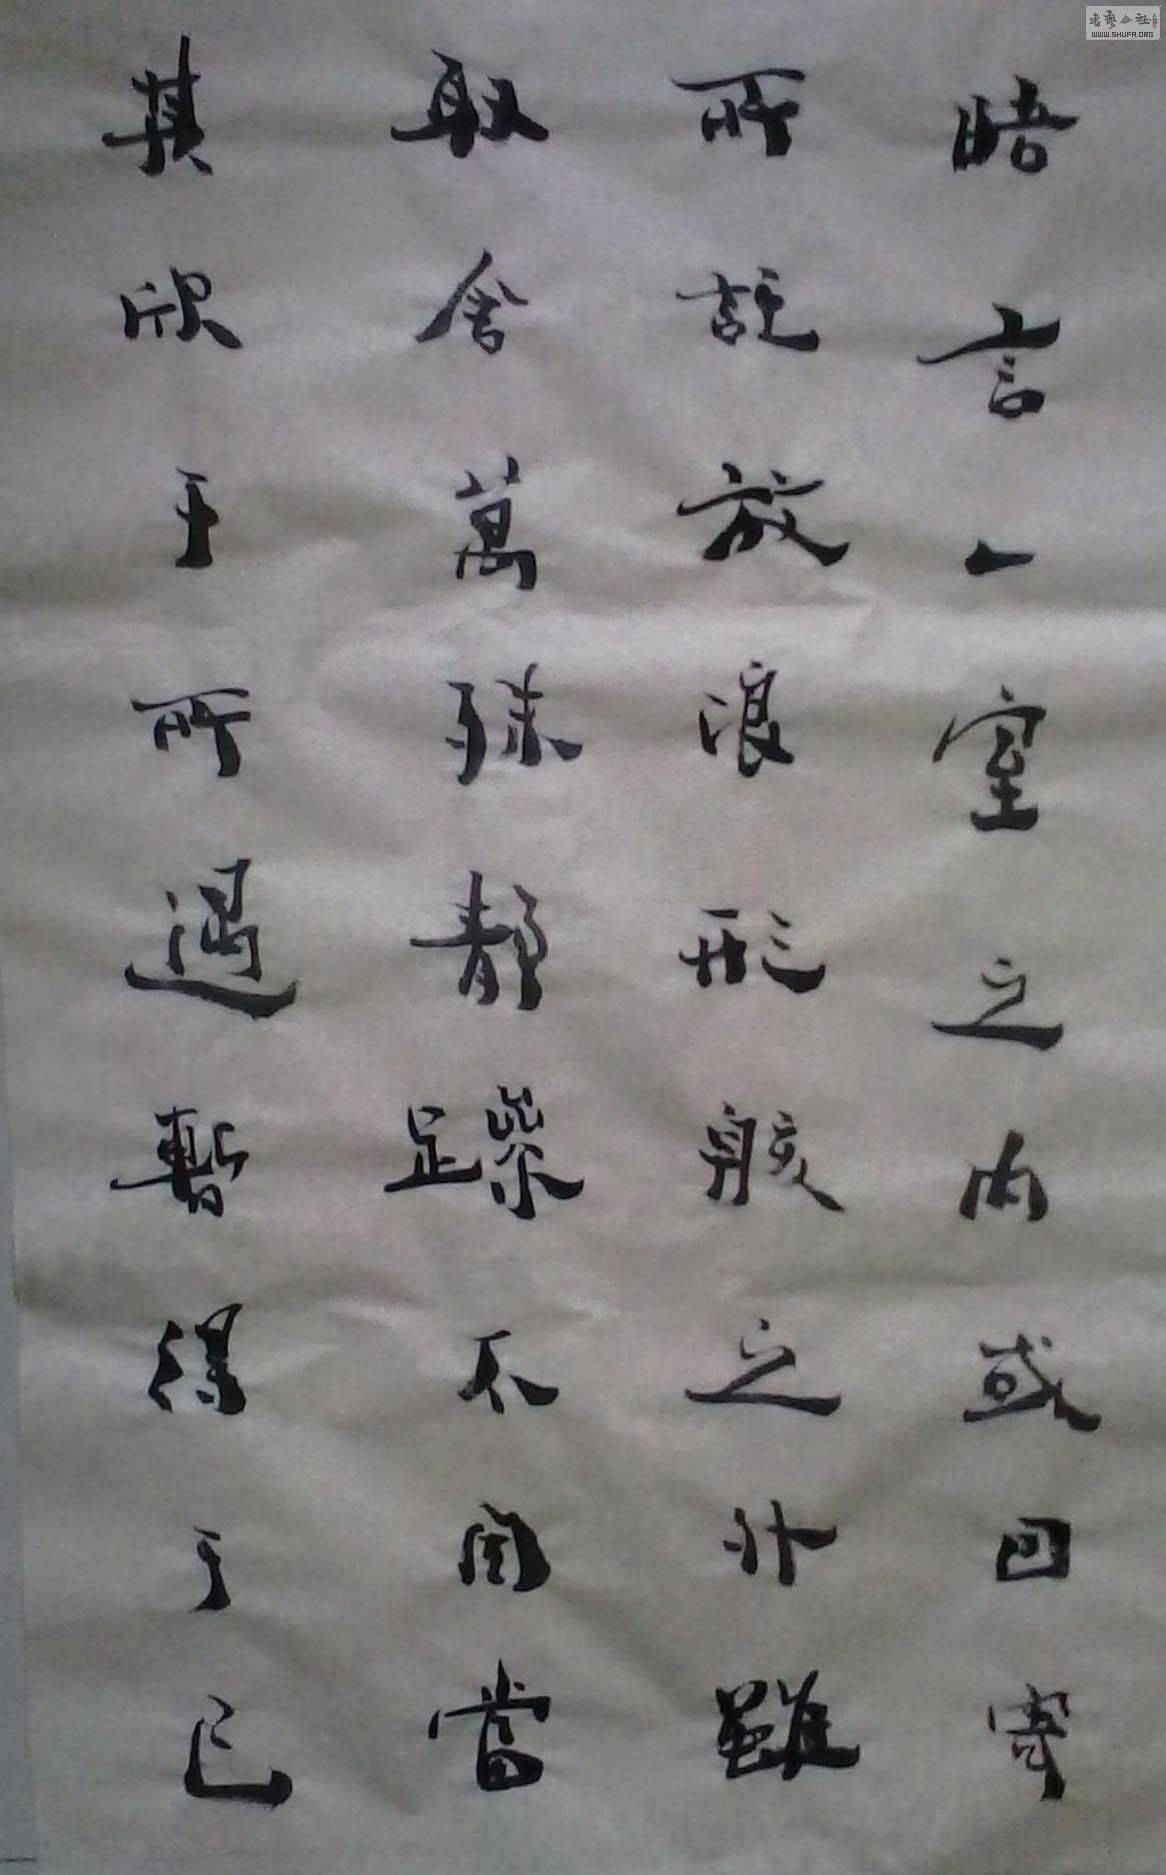 晤言一室之内或因寄
所託放浪形骸之外雖
取舍萬殊靜躁不同當
其欣于所遇暫得于己
WWW.SHUFA.ORG